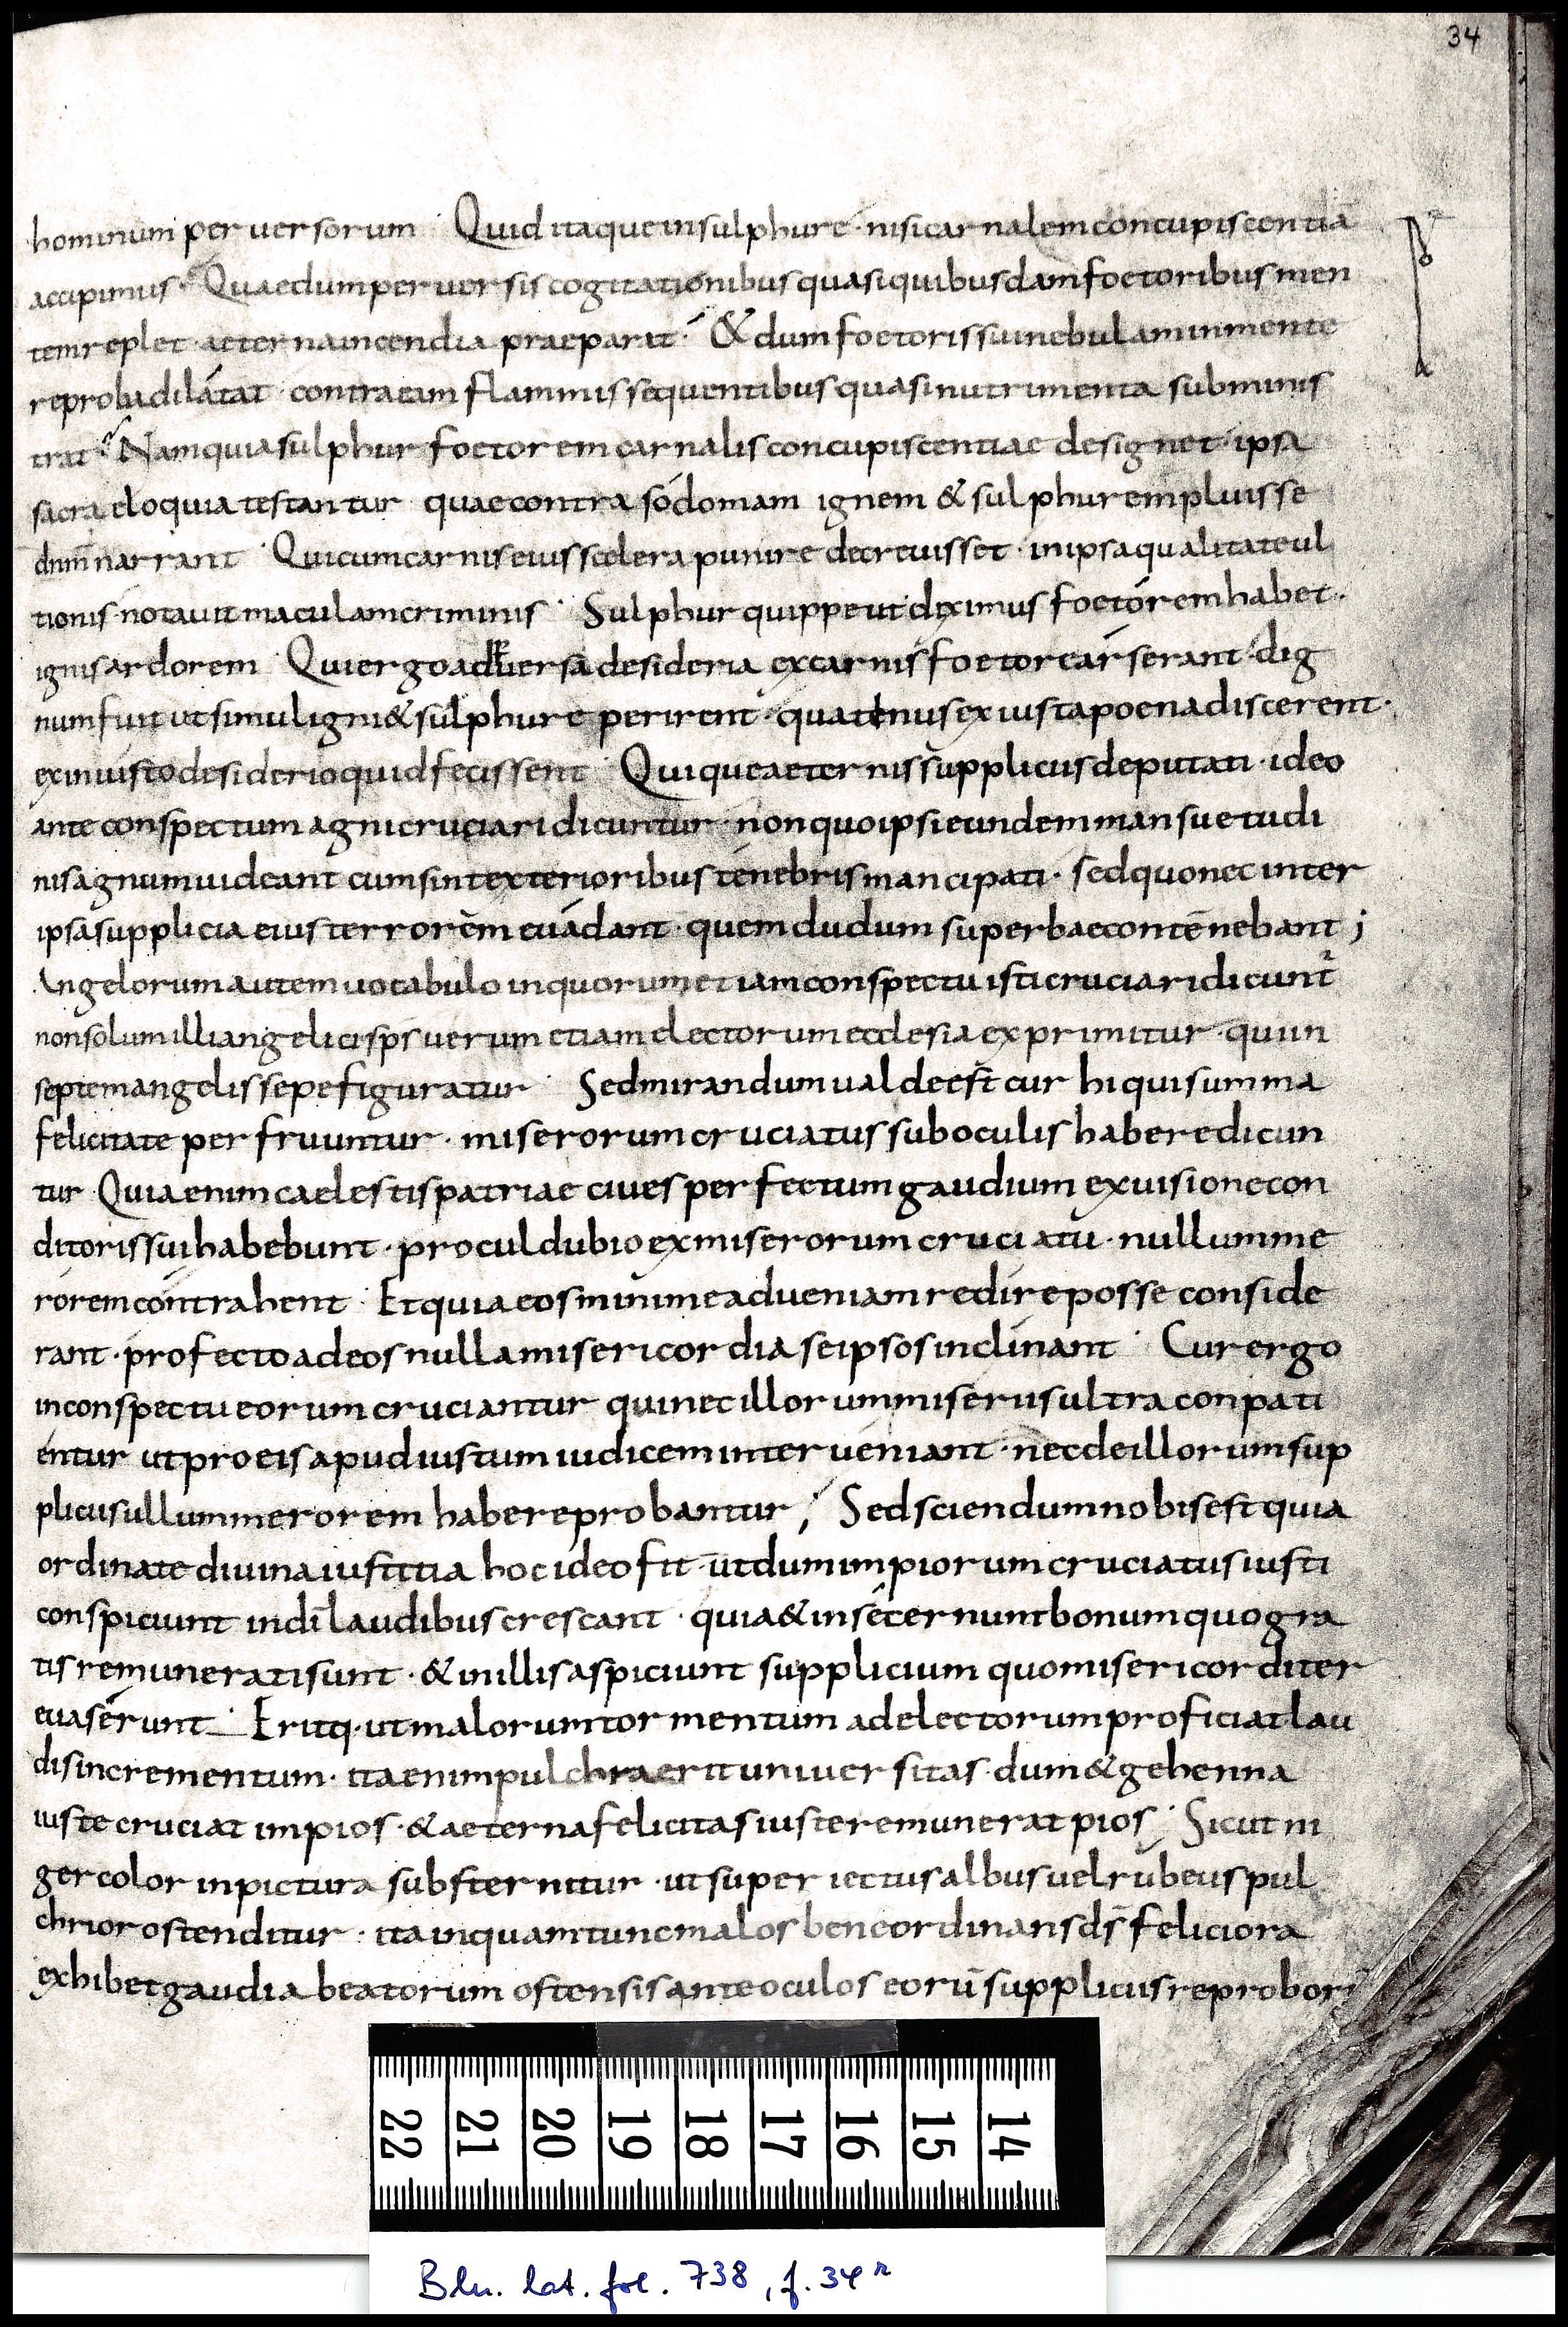 34
hominum peruersorum · Quid itaque in sulphure · nisi carnalem concupiscentiā
accipimus · Quae dum peruersis cogitationibus quasi quibusdam foetoribus men
tem replet · aeterna incendia praeparat · & dum foetoris sui nebulam in mente
reproba dilatat · contra eam flammis sequentibus quasi nutrimenta subminis
trat · Nam quia sulphur foetorem carnalis concupiscentiae designet · ipsa
sacra eloquia testantur quae contra sodomam ignem & sulphurem pluisse
dnm̄ narrant · Qui cum carnis eius scelera punire decreuisset · in ipsa qualitate ul
tionis notauit maculam criminis · Sulphur quippe ut diximus foetorem habet ·
ignis ardorem · Qui ergo aduersa desideria ex carnis foetore arserant · dig
num fuit ut simul igni & sulphure perirent · quatenus ex iusta poena discerent ·
ex iniusto desiderio quid fecissent · Qui que aeternis suppliciis deputati · ideo
ante conspectum agni cruciari dicuntur · non quo ipsi eundem mansuetudi
nis agnum uideant cum sint exterioribus tenebris mancipati · sed quo nec inter
ipsa supplicia eius terrorem euadant · quem dudum superbae contēnebant ;
Angelorum autem uocabulo in quorum etiam conspectu isti cruciari dicunt᷑
non solum illi angelici sp̄s uerum etiam electorum ecclesia exprimitur · qu in
septem angelis sepe figuratur · Sed mirandum ualde est cur hi qui summa
felicitate perfruuntur · miserorum cruciatus sub oculis habere dicun
tur Quia enim caelestis patriae ciues perfectum gaudium ex uisione con
ditoris sui habebunt · procul dubio ex miserorum cruciatu · nullum me
rorem contrahent · Et quia eos minime ad ueniam redire posse conside
rant · profecto ad eos nulla misericordia se ipsos inclinant · Cur ergo
in conspectu eorum cruciantur qui nec illorum miseriis ultra conpati
entur ut pro eis apud iustum iudicem interueniant · nec de illorum sup
pliciis ullum merorem habere probantur ; Sed sciendum nobis est quia
ordinate diuina iustitia hoc ideo fit · ut dum impiorum cruciatus iusti
conspiciunt in dī laudibus crescant · quia & in se cernunt bonum quo gra
tis remunerati sunt · & in illis aspiciunt supplicium quo misericorditer
euaserunt · Eritq· ut malorum tormentum ad electorum proficiat lau
dis incrementum · ita enim pulchra erit uniuersitas · dum & gehenna
iuste cruciat impios · & aeterna felicitas iuste remunerat pios · Sicut ni
ger color in pictura substernitur · ut super iectus albus uel rubeus pul
chrior ostenditur · ita inquam tunc malos bene ordinans d̄s feliciora
exhibet gaudia beatorum ostensis ante oculos eorū suppliciis reproborū
22 21 20 19 18 17 16 15 14
Bln. lat. fol. 738, f. 34r